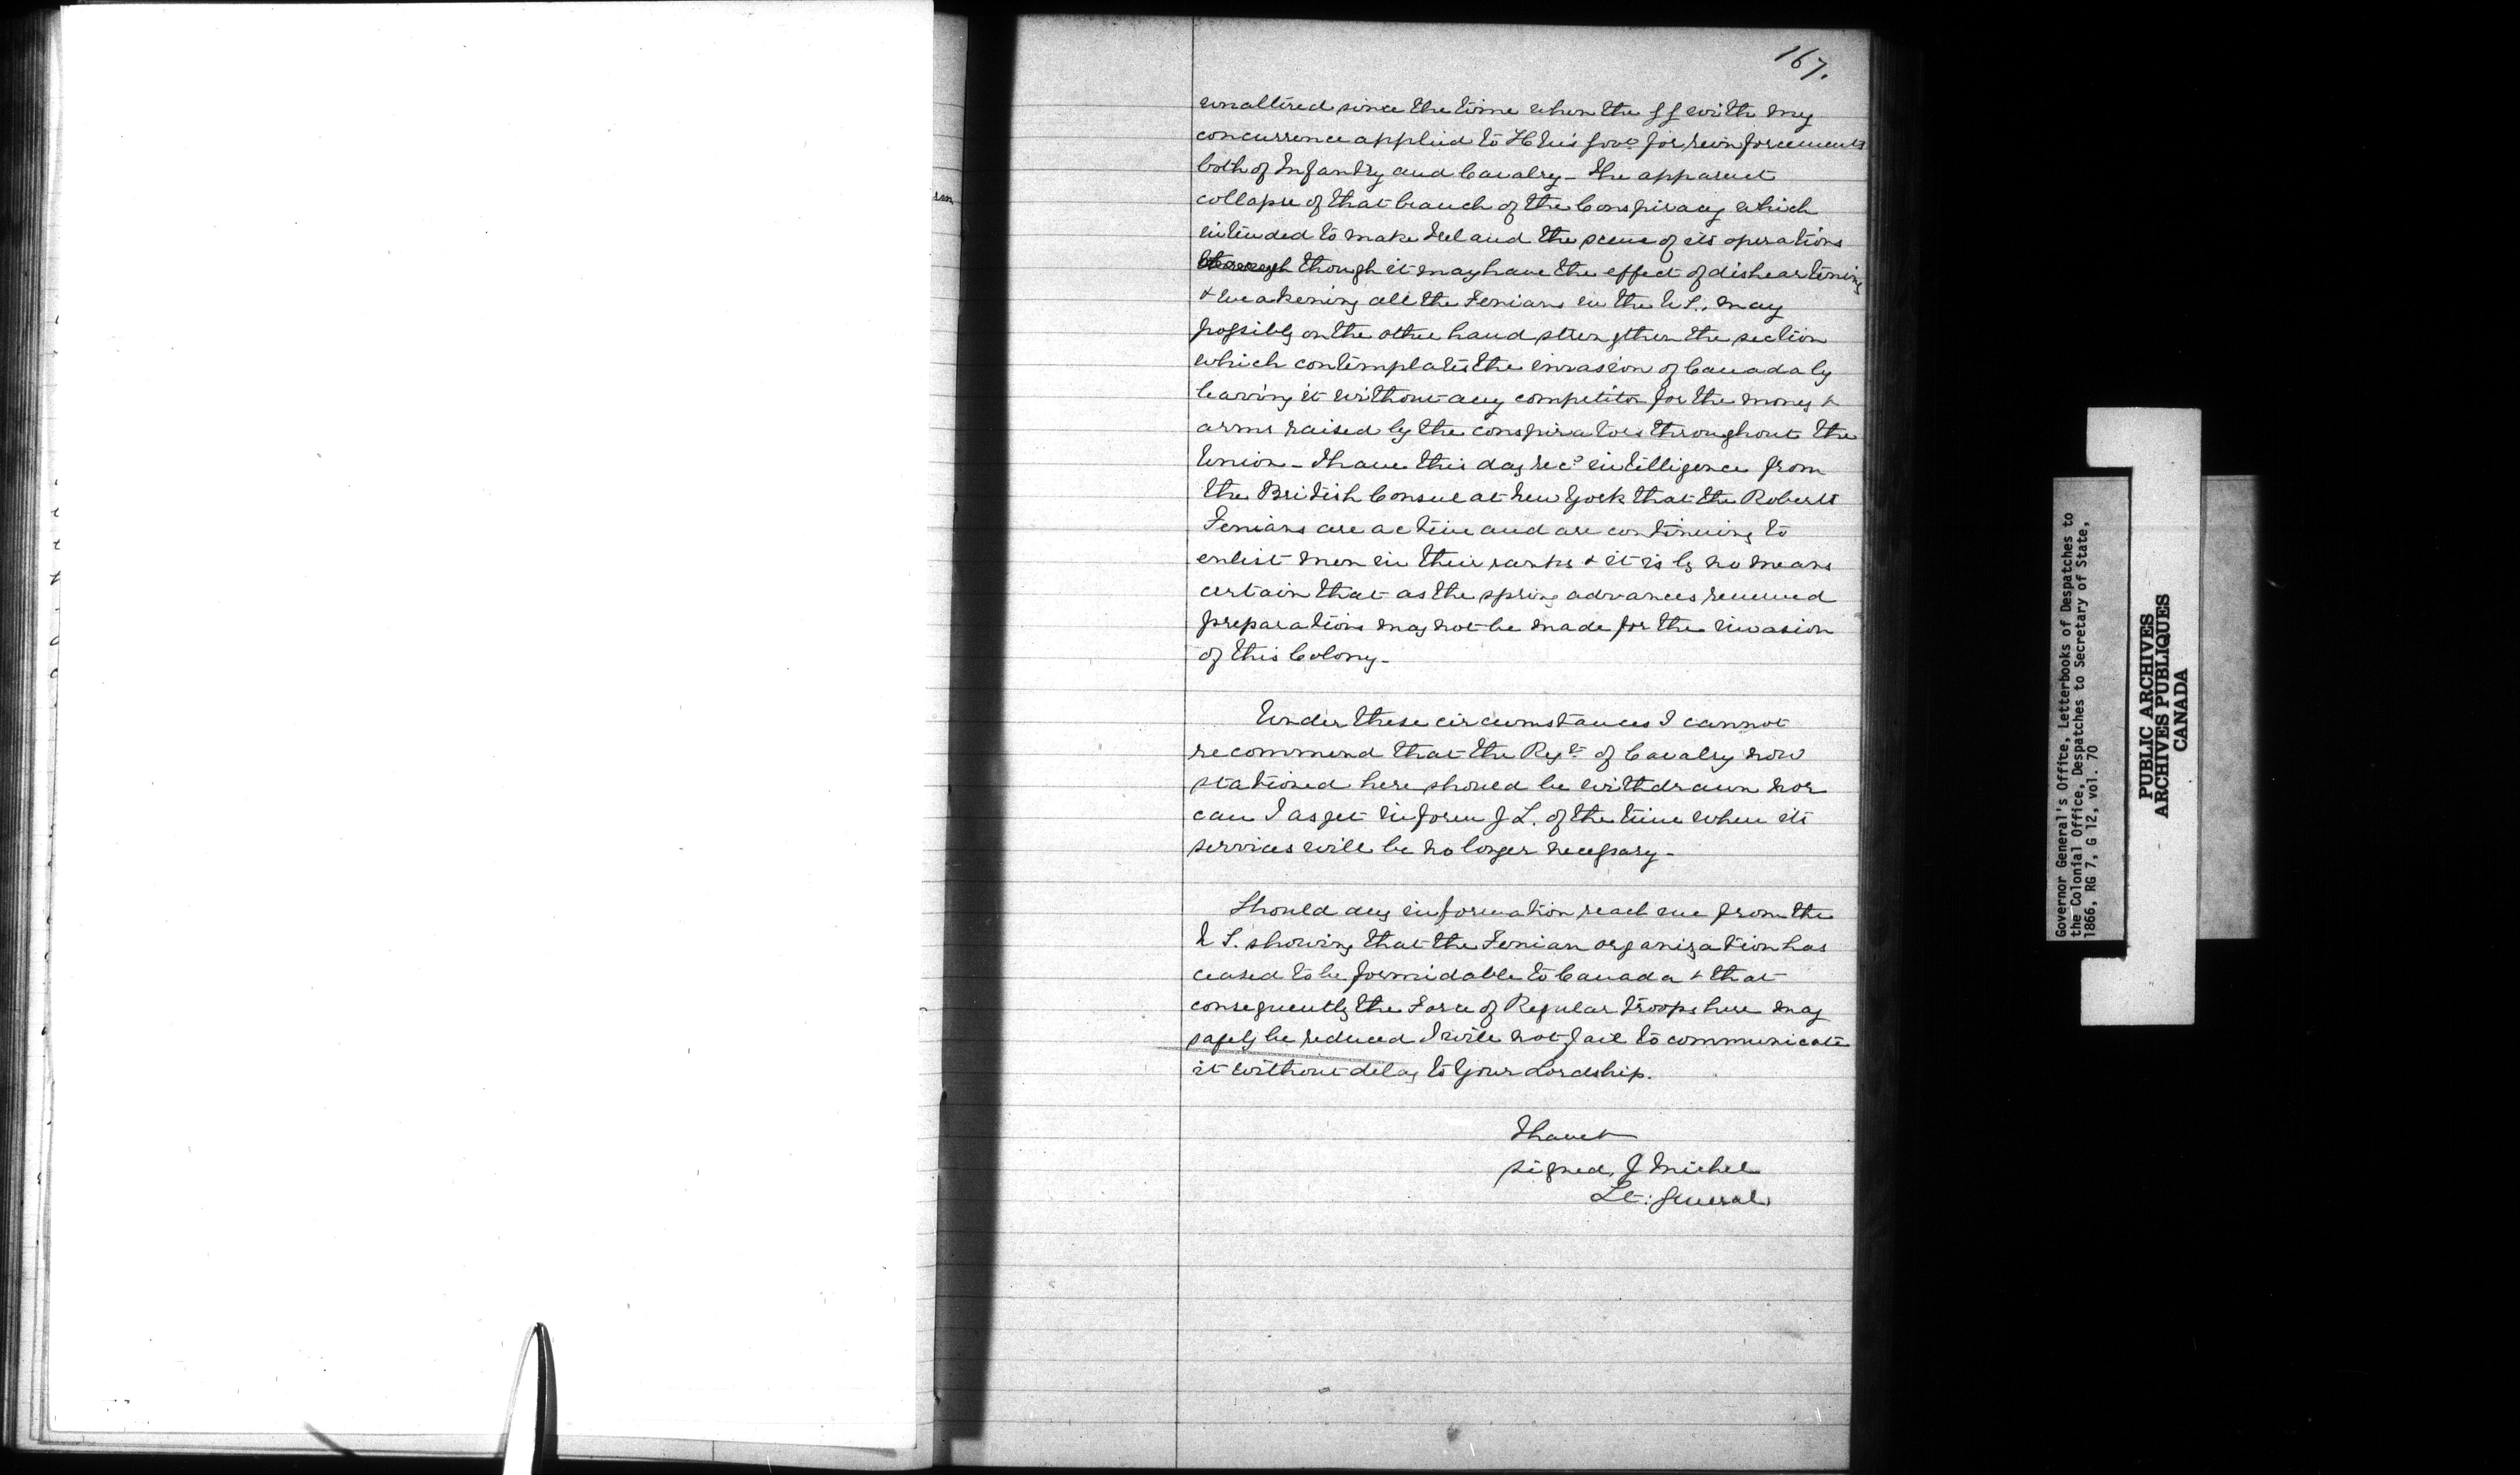 167.
unaltered since the time when the GG with my
concurrence applied to HM's Govt for reinforcements
both of Infantry and Cavalry - The apparent
collapse of that branch of the Conspiracy which
intended to make Ireland the scene of its operations
though it may have the effect of disheartening
& weakening all the Fenians in the U S., may
possibly on the other hand strengthen the section
which contemplates the invasion of Canada by
leaving it without any competitor for the money &
arms raised by the conspirators throughout the
Union - I have this day recd intelligence from
the British Consul at New York that the Roberts
Fenians are active and are continuing to
enlist men in their ranks & it is by no means
certain that as the spring advances renewed
preparations may not be made for the invasion
of this Colony -
Under these circumstances I cannot
recommend that the Regt of Cavalry now
stationed here should be withdrawn nor
can I as yet inform Y L. of the time when its
services will be no longer necessary -
Should any information reach me from the
U S. showing that the Fenian organization has
ceased to be formidable to Canada & that
consequently the Force of Regular troops here may
safely be reduced I will not fail to communicate
it without delay to Your Lordship.
I have &
signed, J Michel
Lt: General
Governor General's Office, Letterbooks of Despatches to
the Colonial Office, Despatches to Secretary of State,
1866, RG 7, G 12, vol. 70
PUBLIC ARCHIVES
ARCHIVES PUBLIQUES
CANADA